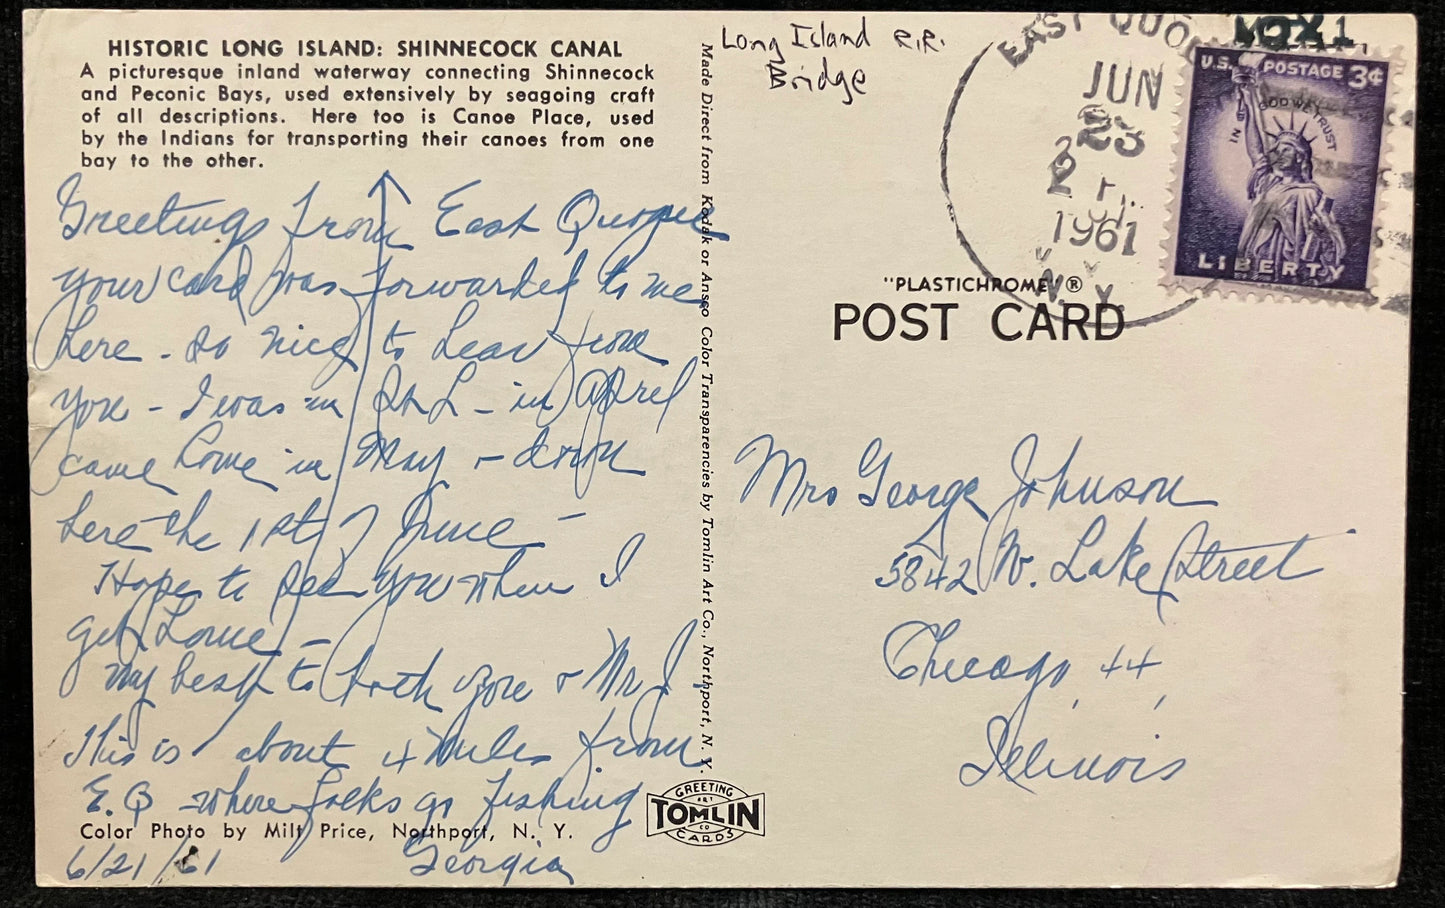 HISTORIC LONG ISLAND: SHINNECOCK CANAL
A picturesque inland waterway connecting Shinnecock
and Peconic Bays, used extensively by seagoing craft
of all descriptions. Here too is Canoe Place, used
by the Indians for transporting their canoes from one
bay to the other.
Greetings from East Quogue
your card was forwarded to me
here - so nice to hear from
you - I was in St L - in April
came home in May - down
here the 1st of June -
Hope to see you when I
get home -
My best to both you & Mr J
This is about 4 miles from
E.Q where folks go fishing
Color Photo by Milt Price, Northport, N. Y.
6/21/61 Georgia
Made Direct from Kodak or Ansco Color Transparencies by Tomlin Art Co., Northport, N. Y.
GREETING
ART
TOMLIN
CO
CARDS
Long Island R.R.
Bridge
EAST QUO
JUN
23
2
1961
N. Y.
U.S. POSTAGE 3¢
IN GOD WE TRUST
LIBERTY
"PLASTICHROME" ®
POST CARD
Mrs George Johnson
5842 W. Lake Street
Chicago, 44,
Illinois